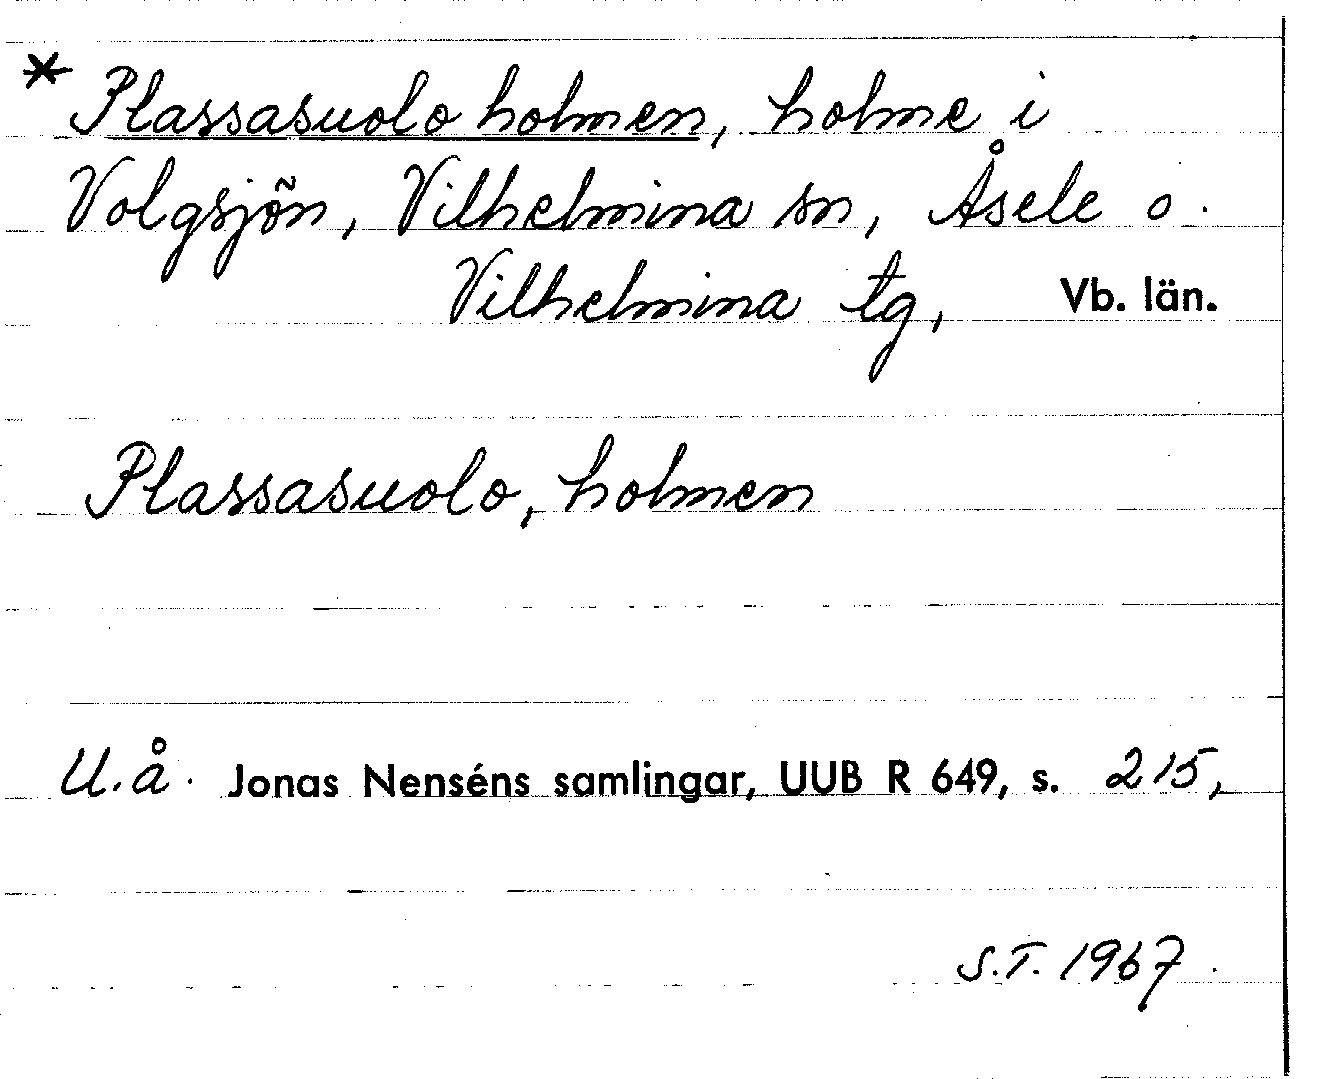 * Plassasuolo holmen, holme i
Volgsjön, Vilhelmina sn, Åsele o.
Vilhelmina tg, Vb. län.
Plassasuolo, holmen
U.å. Jonas Nenséns samlingar, UUB R 649, s. 215,
S.T. 1967.